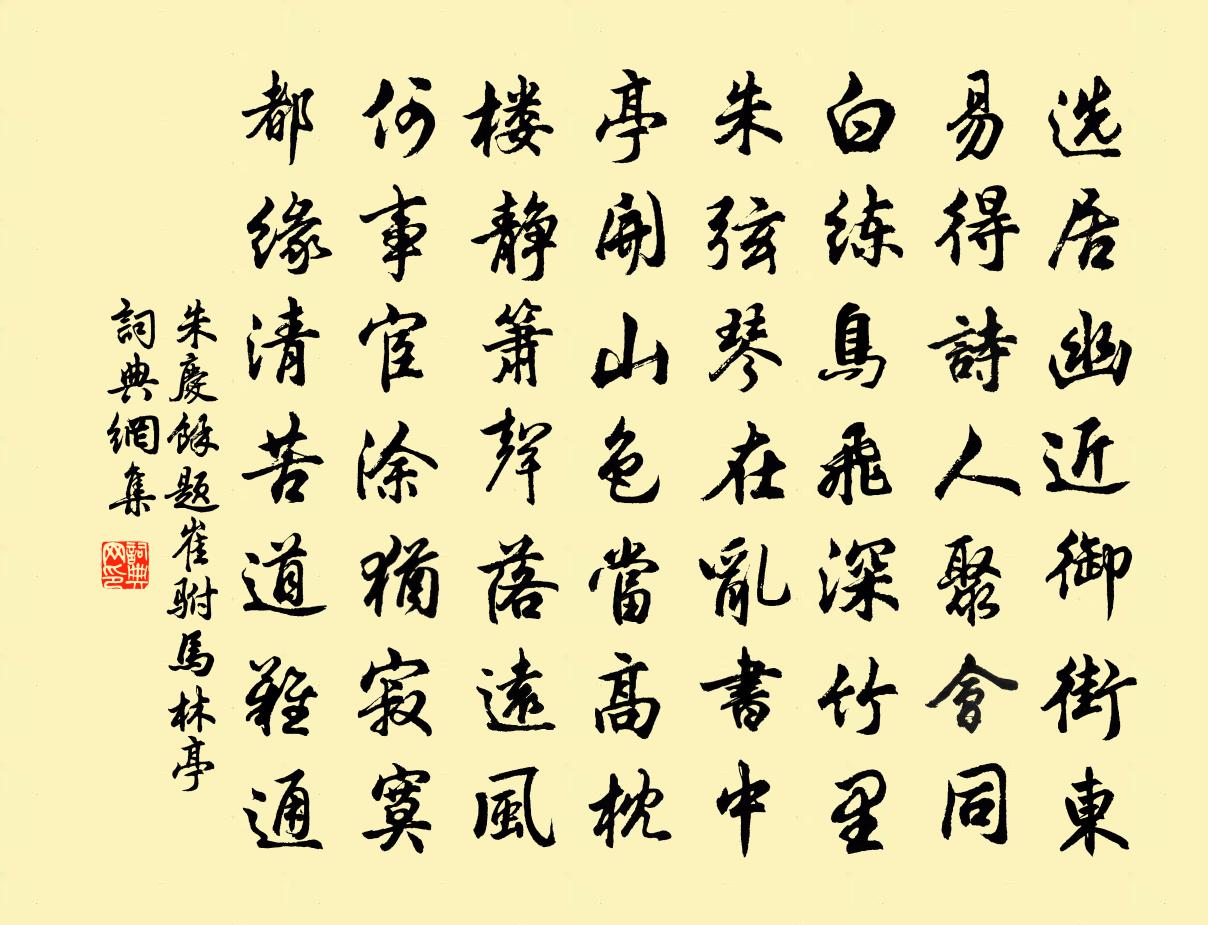 选居幽近御街東
易得詩人聚會同
白练鳥飛深竹里
朱弦琴在亂書中
亭開山色當高枕
楼静簫聲落遠風
何事官涂猶寂寞
都缘清苦道難通
朱慶餘題崔駙馬林亭
詞典網集
詞典网印